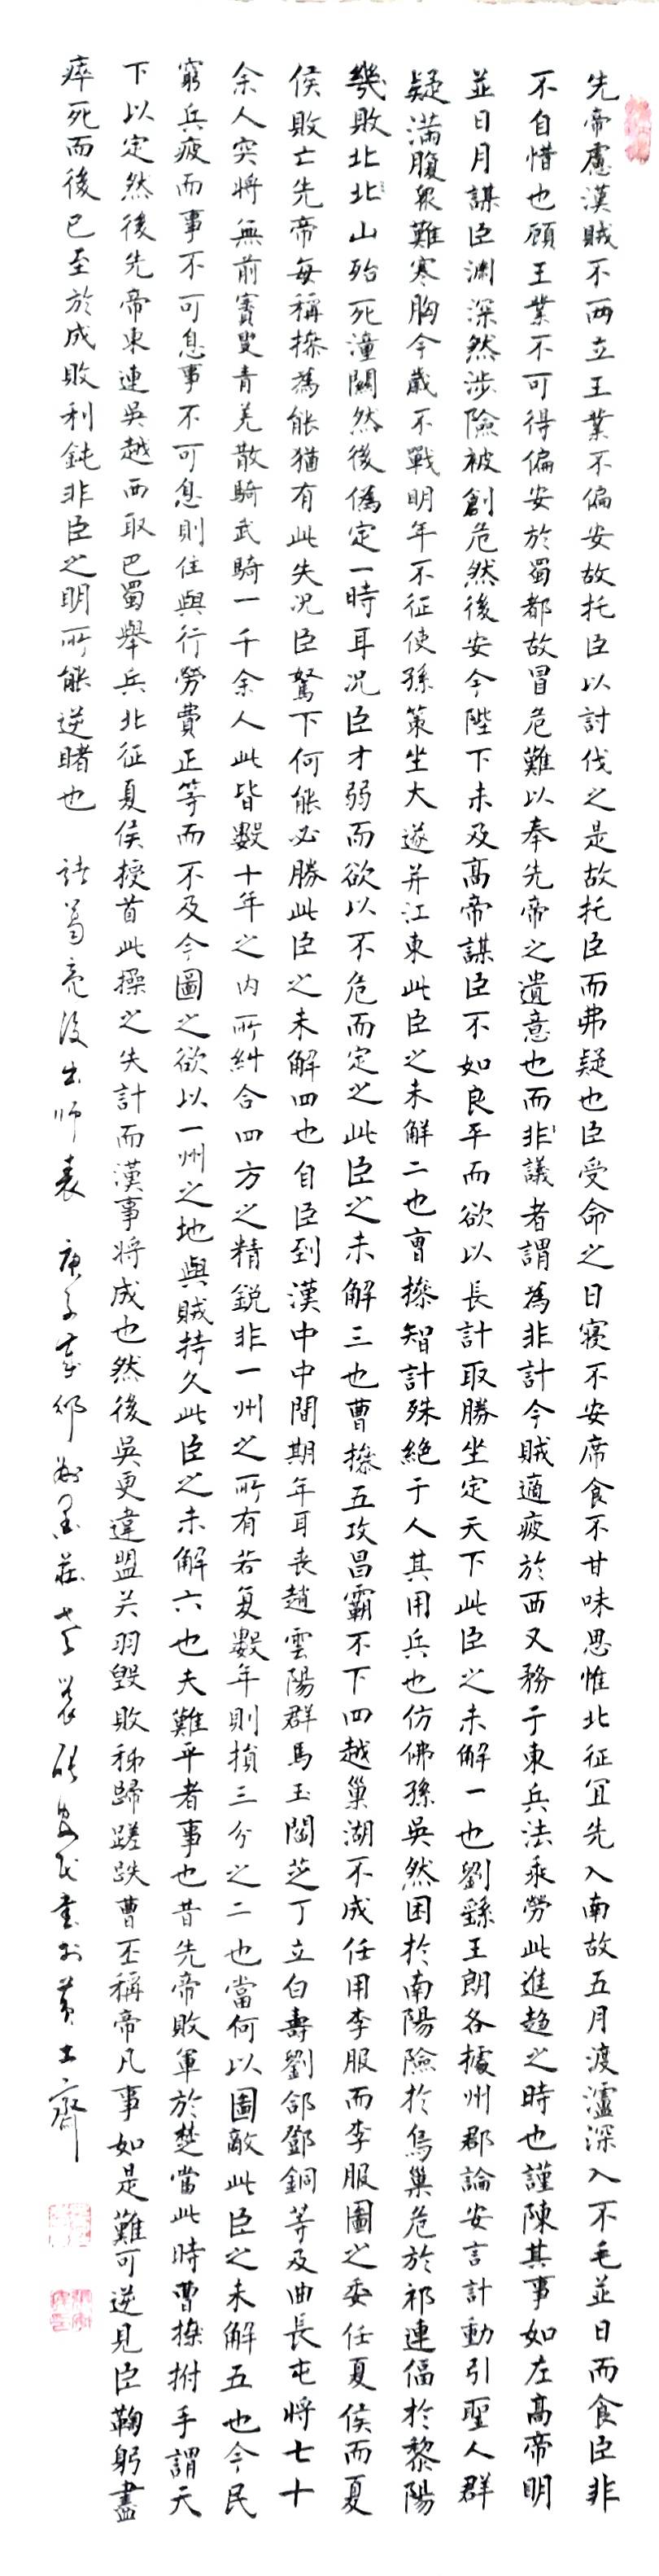 先帝慮漢賊不兩立王業不偏安故托臣以討伐之是故托臣而弗疑也臣受命之日寝不安席食不甘味思惟北征冝先入南故五月渡瀘深入不毛並日而食臣非
不自惜也顾王業不可得偏安於蜀都故冒危難以奉先帝之遺意也而非議者謂為非計今賊適疲於西又務于東兵法乘勞此進趋之時也謹陳其事如左髙帝明
並日月謀臣渊深然涉險被創危然後安今陛下未及髙帝謀臣不如良平而欲以長計取勝坐定天下此臣之未解一也劉繇王朗各據州郡論安言計動引聖人群
疑滿腹衆難寒胸今歲不戰明年不征使孫策坐大遂并江東此臣之未解二也曹操智計殊絶于人其用兵也仿佛孫吳然困於南陽險於烏巢危於祁連偪於黎陽
幾敗北北山殆死潼關然後偽定一時耳况臣才弱而欲以不危而定之此臣之未解三也曹操五攻昌霸不下四越巢湖不成任用李服而李服圖之委任夏侯而夏
侯敗亡先帝每稱操為能猶有此失况臣駑下何能必勝此臣之未解四也自臣到漢中中間期年耳丧趙雲陽群馬玉閻芝丁立白壽劉郃鄧銅等及曲長屯将七十
余人突将無前賨叟青羌散騎武騎一千余人此皆數十年之内所糾合四方之精銳非一州之所有若复數年則損三分之二也當何以圖敵此臣之未解五也今民
窮兵疲而事不可息事不可息則住與行勞費正等而不及今圖之欲以一州之地與賊持久此臣之未解六也夫難平者事也昔先帝敗軍於楚當此時曹操拊手謂天
下以定然後先帝東連吳越西取巴蜀舉兵北征夏侯授首此操之失計而漢事将成也然後吳更違盟关羽毁敗秭歸蹉跌曹丕稱帝凡事如是難可逆見臣鞠躬盡
瘁死而後已至於成敗利鈍非臣之明所能逆睹也 諸葛亮後出师表 庚子